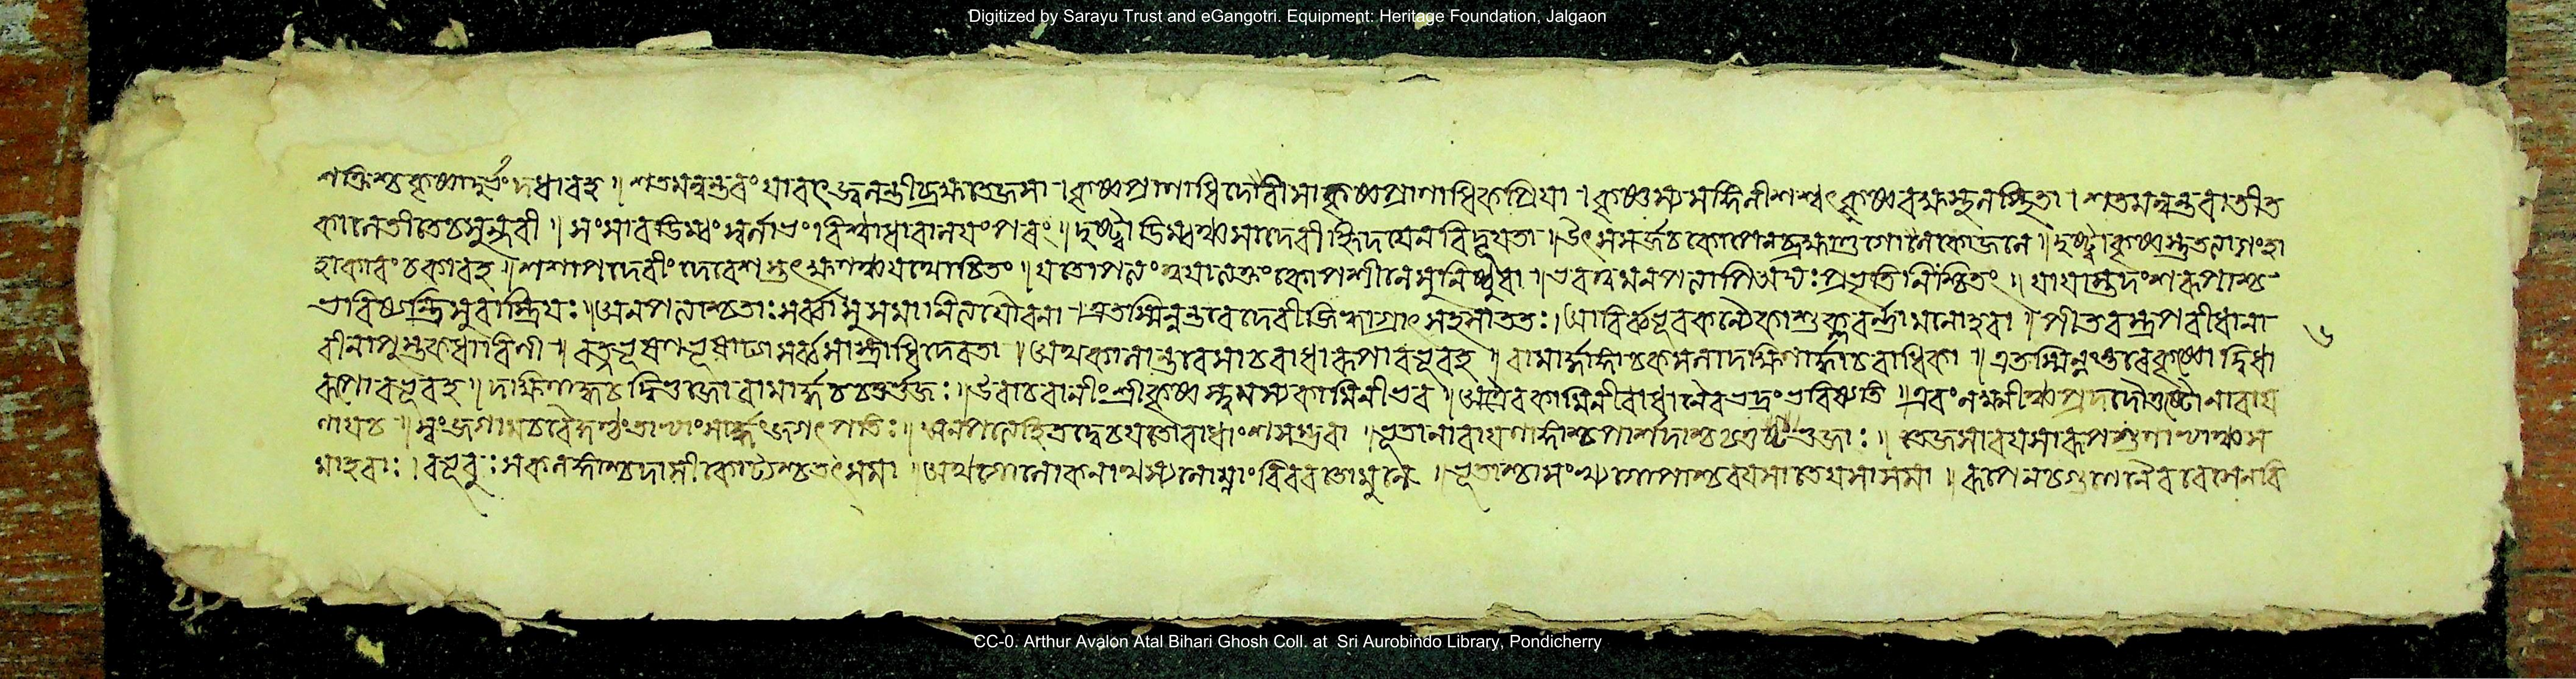 Digitized by Sarayu Trust and eGangotri. Equipment: Heritage Foundation, Jalgaon
শক্তিশ্চ কৃষ্ণাদ্গর্ভং দধার হ ॥ শতমন্বন্তরং যাবৎ জ্বলন্তী ব্রহ্মতেজসা । কৃষ্ণপ্রাণাধিদেবী সা কৃষ্ণপ্রাণাধিকপ্রিয়া । কৃষ্ণস্য সঙ্গিনী শশ্বৎ কৃষ্ণবক্ষস্থলস্থিতা । শতমন্বন্তরাতীত
কালেতীতে চ সুন্দরী ॥ সুষাব ডিম্বং স্বর্নাভং বিশ্বাধারালয়ং পরং ॥ দৃষ্ট্বা ডিম্বঞ্চ সা দেবী হৃদয়েন বিদূয়তা ॥ উৎসসর্জ্জ চ কোপেন ব্রহ্মাণ্ড গোলোকে জলে ॥ দৃষ্ট্বা কৃষ্ণস্তু তত্যাগং হা
হাকারং চকার হ ॥ শশাপ দেবীং দেবেশস্তৎক্ষণঞ্চ যথোচিতং ॥ যতোপত্যং ত্বয়া ত্যক্তং কোপশীলে সুনিষ্ঠুরা ॥ ভব ত্বমনপত্যাপি অদ্য প্রভৃতি নিশ্চিতং ॥ যা যাস্ত্বদংশরূপাশ্চ
ভবিষ্যন্তি সুরাস্ত্রিয়ঃ ॥ অনপত্যাশ্চ তাঃ সর্ব্বাসু সমা নিত্যযৌবনা । এতস্মিন্নন্তরে দেবী জিহ্বাগ্রাৎ সহসা ততঃ । আবির্ব্বভূব কন্যৈকা শুক্লবর্ন্না মনোহরা ॥ পীতবস্ত্রপরীধানা
বীনাপুস্তকধারিনী ॥ রত্নভূষণভূষাঢ্যা সর্ব্বশাস্ত্রাধিদেবতা ॥ অথ কালান্তরে সা চ রাধারূপা বভূব হ ॥ বামার্দ্ধাঙ্গা চ কমলা দক্ষিণার্দ্ধা চ রাধিকা ॥ এতস্মিন্নন্তরে কৃষ্ণো দ্বিধা
রূপো বভূব হ ॥ দক্ষিণার্দ্ধশ্চ দ্বিভুজো বামার্দ্ধশ্চ চতুর্ভুজঃ ॥ উবাচ বানীং শ্রীকৃষ্ণস্ত্বমস্য কামিনী ভব ॥ অত্রৈব কামিনী রাধা নৈব ভদ্রং ভবিষ্যতি ॥ এবং লক্ষ্মীঞ্চ প্রদদৌ তুষ্টো নারায়
ণায় চ ॥ জগাম চ বৈকুণ্ঠং তাভ্যাং সার্দ্ধং জগৎপতিঃ ॥ অনপত্যে দ্বে চ যতো রাধাংশসম্ভবা ॥ ভূতা নারায়ণাঙ্গাশ্চ পার্শদাশ্চ চতুর্ভুজাঃ ॥ তেজসা বয়সা রূপগুণাভ্যাঞ্চ স
মাহরাঃ । বভূবুঃ কমলাঙ্গাশ্চ দাসীকোট্যশ্চ তৎসমা ॥ অথ গোলোকনাথস্য লোম্নাং বিবরতো মুনে ॥ ভূতাশ্চাসংখ্যগোপাশ্চ বয়সা তেজসা সমা ॥ রূপেন চ গুণেনৈব বেশেন বি
৬
CC-0. Arthur Avalon Atal Bihari Ghosh Coll. at Sri Aurobindo Library, Pondicherry